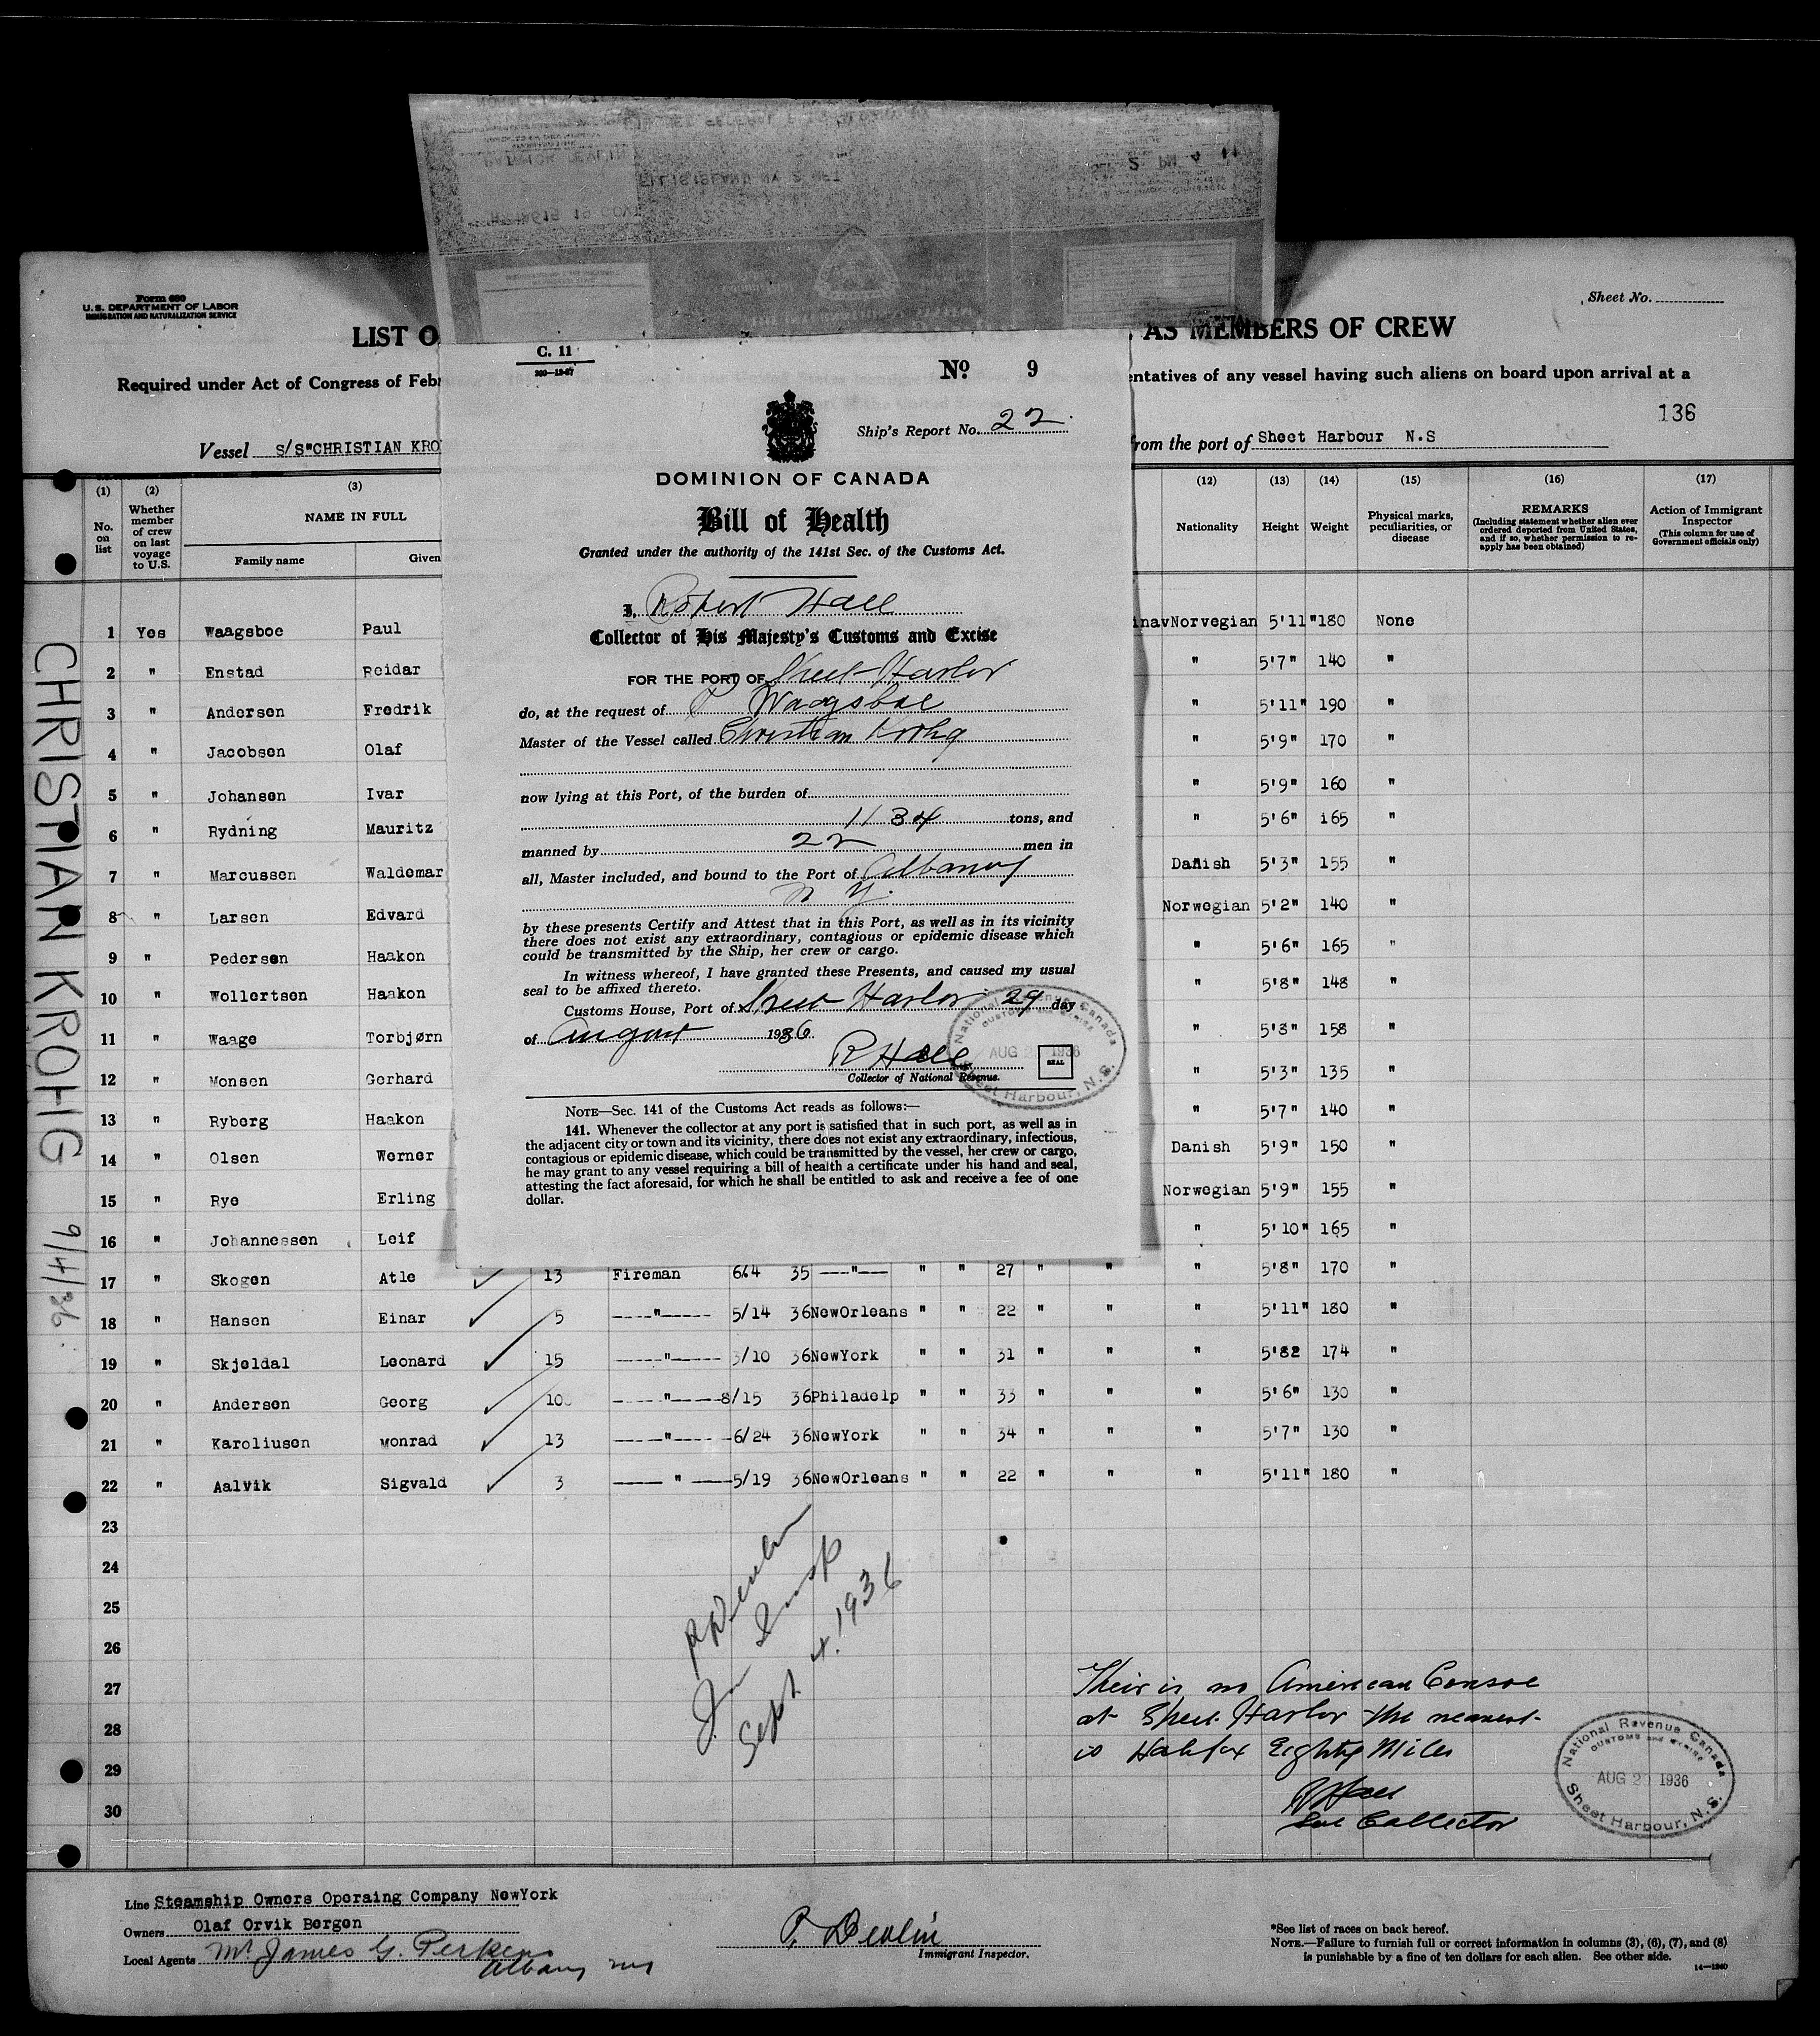 Form 680
U.S. DEPARTMENT OF LABOR
IMMIGRATION AND NATURALIZATION SERVICE
Sheet No.
LIST O
AS MEMBERS OF CREW
Required under Act of Congress of Feb
entatives of any vessel having such aliens on board upon arrival at a
136
Vessel S/S"CHRISTIAN KRO
from the port of Sheet Harbour N.S
C. 11
No 9
Ship's Report No. 22
DOMINION OF CANADA
Bill of Health
Granted under the authority of the 141st Sec. of the Customs Act.
I, Robert Hall
Collector of His Majesty's Customs and Excise
FOR THE PORT OF Sheet Harbor
do, at the request of P Waagsboe
Master of the Vessel called Christian Krohg
now lying at this Port, of the burden of
1134 tons, and
manned by 22 men in
all, Master included, and bound to the Port of Albany
N Y.
by these presents Certify and Attest that in this Port, as well as in its vicinity
there does not exist any extraordinary, contagious or epidemic disease which
could be transmitted by the Ship, her crew or cargo.
In witness whereof, I have granted these Presents, and caused my usual
seal to be affixed thereto.
Customs House, Port of Sheet Harbor 29 day
of August 1936.
R Hall
Collector of National Revenue.
SEAL
National Revenue Canada
CUSTOMS and EXCISE
AUG 2 1936
Sheet Harbour, N.S.
NOTE—Sec. 141 of the Customs Act reads as follows:—
141. Whenever the collector at any port is satisfied that in such port, as well as in
the adjacent city or town and its vicinity, there does not exist any extraordinary, infectious,
contagious or epidemic disease, which could be transmitted by the vessel, her crew or cargo,
he may grant to any vessel requiring a bill of health a certificate under his hand and seal,
attesting the fact aforesaid, for which he shall be entitled to ask and receive a fee of one
dollar.
(1) (2) (3) (12) (13) (14) (15) (16) (17)
No. on list
Whether member of crew on last voyage to U.S.
NAME IN FULL
Family name Given
Nationality Height Weight
Physical marks, peculiarities, or disease
REMARKS
(Including statement whether alien ever ordered deported from United States, and if so, whether permission to re-apply has been obtained)
Action of Immigrant Inspector
(This column for use of Government officials only)
1 Yes Waagsboe Paul inav Norwegian 5'11" 180 None
2 " Enstad Reidar " 5'7" 140 "
3 " Andersen Fredrik " 5'11" 190 "
4 " Jacobsen Olaf " 5'9" 170 "
5 " Johansen Ivar " 5'9" 160 "
6 " Rydning Mauritz " 5'6" 165 "
7 " Marcussen Waldemar Danish 5'3" 155 "
8 " Larsen Edvard Norwegian 5'2" 140 "
9 " Pedersen Haakon " 5'6" 165 "
10 " Wollertsen Haakon " 5'8" 148 "
11 " Waage Torbjørn " 5'8" 158 "
12 " Monsen Gerhard " 5'3" 135 "
13 " Ryberg Haakon " 5'7" 140 "
14 " Olsen Werner Danish 5'9" 150 "
15 " Rye Erling Norwegian 5'9" 155 "
16 " Johannessen Leif " 5'10" 165 "
17 " Skogen Atle 13 Fireman 6/4 35 —"— " " 27 " " " 5'8" 170 "
18 " Hansen Einar 5 —"— 5/14 36 NewOrleans " " 22 " " " 5'11" 180 "
19 " Skjeldal Leonard 15 —"— 3/10 36 NewYork " " 31 " " " 5'82 174 "
20 " Andersen Georg 10 —"— 8/15 36 Philadelp " " 33 " " " 5'6" 130 "
21 " Karoliusen Monrad 13 —"— 6/24 36 NewYork " " 34 " " " 5'7" 130 "
22 " Aalvik Sigvald 3 —"— 5/19 36 NewOrleans " " 22 " " " 5'11" 180 "
23
24
25
26
27
28
29
30
CHRISTIAN KROHG 9/4/36.
P Devlin
Im Insp
Sept 4. 1936
Their is no American Consol
at Sheet Harbor the nearest
is Halifax Eighty Miles
R Hall
Sub Collector
National Revenue Canada
CUSTOMS and EXCISE
AUG 29 1936
Sheet Harbour, N.S.
Line Steamship Owners Operaing Company NewYork
Owners Olaf Orvik Bergen
Local Agents Mr James G. Perkins
Albany NY
P. Devlin
Immigrant Inspector.
*See list of races on back hereof.
NOTE.—Failure to furnish full or correct information in columns (3), (6), (7), and (8)
is punishable by a fine of ten dollars for each alien. See other side.
14—1240